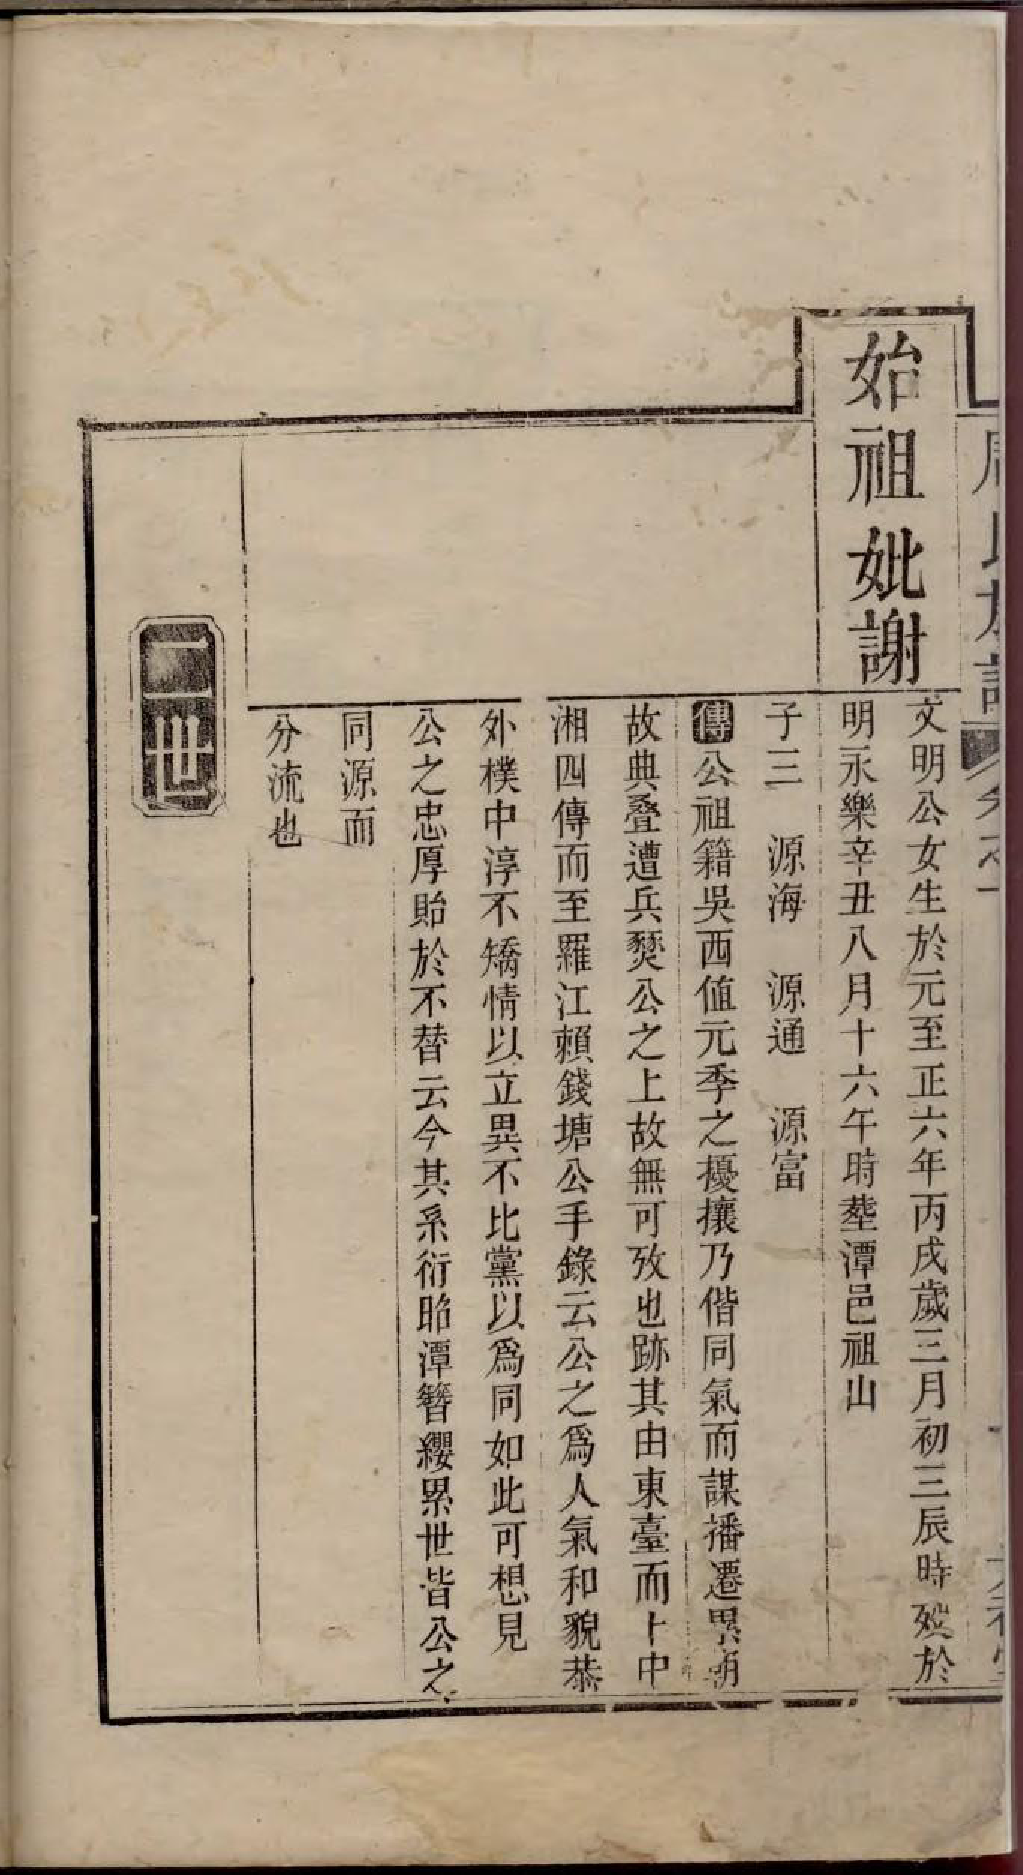 周氏族譜
卷之一
始祖妣謝
文明公女生於元至正六年丙戌歲三月初三辰時歿於
明永樂辛丑八月十六午時塟潭邑祖山
子三 源海 源通 源富
傳公祖籍吳西值元季之擾攘乃偕同氣而謀播遷累朝
故典叠遭兵燹公之上故無可攷也跡其由東臺而卜中
湘四傳而至羅江賴錢塘公手錄云公之爲人氣和貌恭
外樸中淳不矯情以立異不比黨以爲同如此可想見
公之忠厚貽於不替云今其系衍昭潭簪纓累世皆公之
同源而
分流也
二世